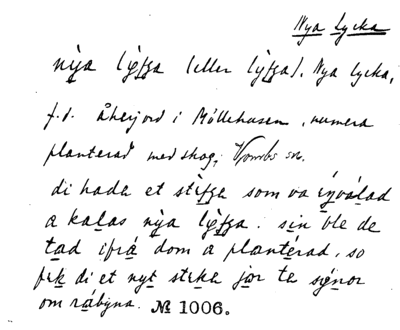 Nya Lycka
nỳa lỳfga (eller lỳfga). Nya lycka,
f.d. åkerjord i Möllehusen, numera
planterad med skog, Vombs sn.
di hade et stifga som va ínvàlad
a kalas nỳa lỳfga. sin ble de
tad ifrå dom a plantérad, so
fek di et nyt steka jor te
om rábyna. № 1006.